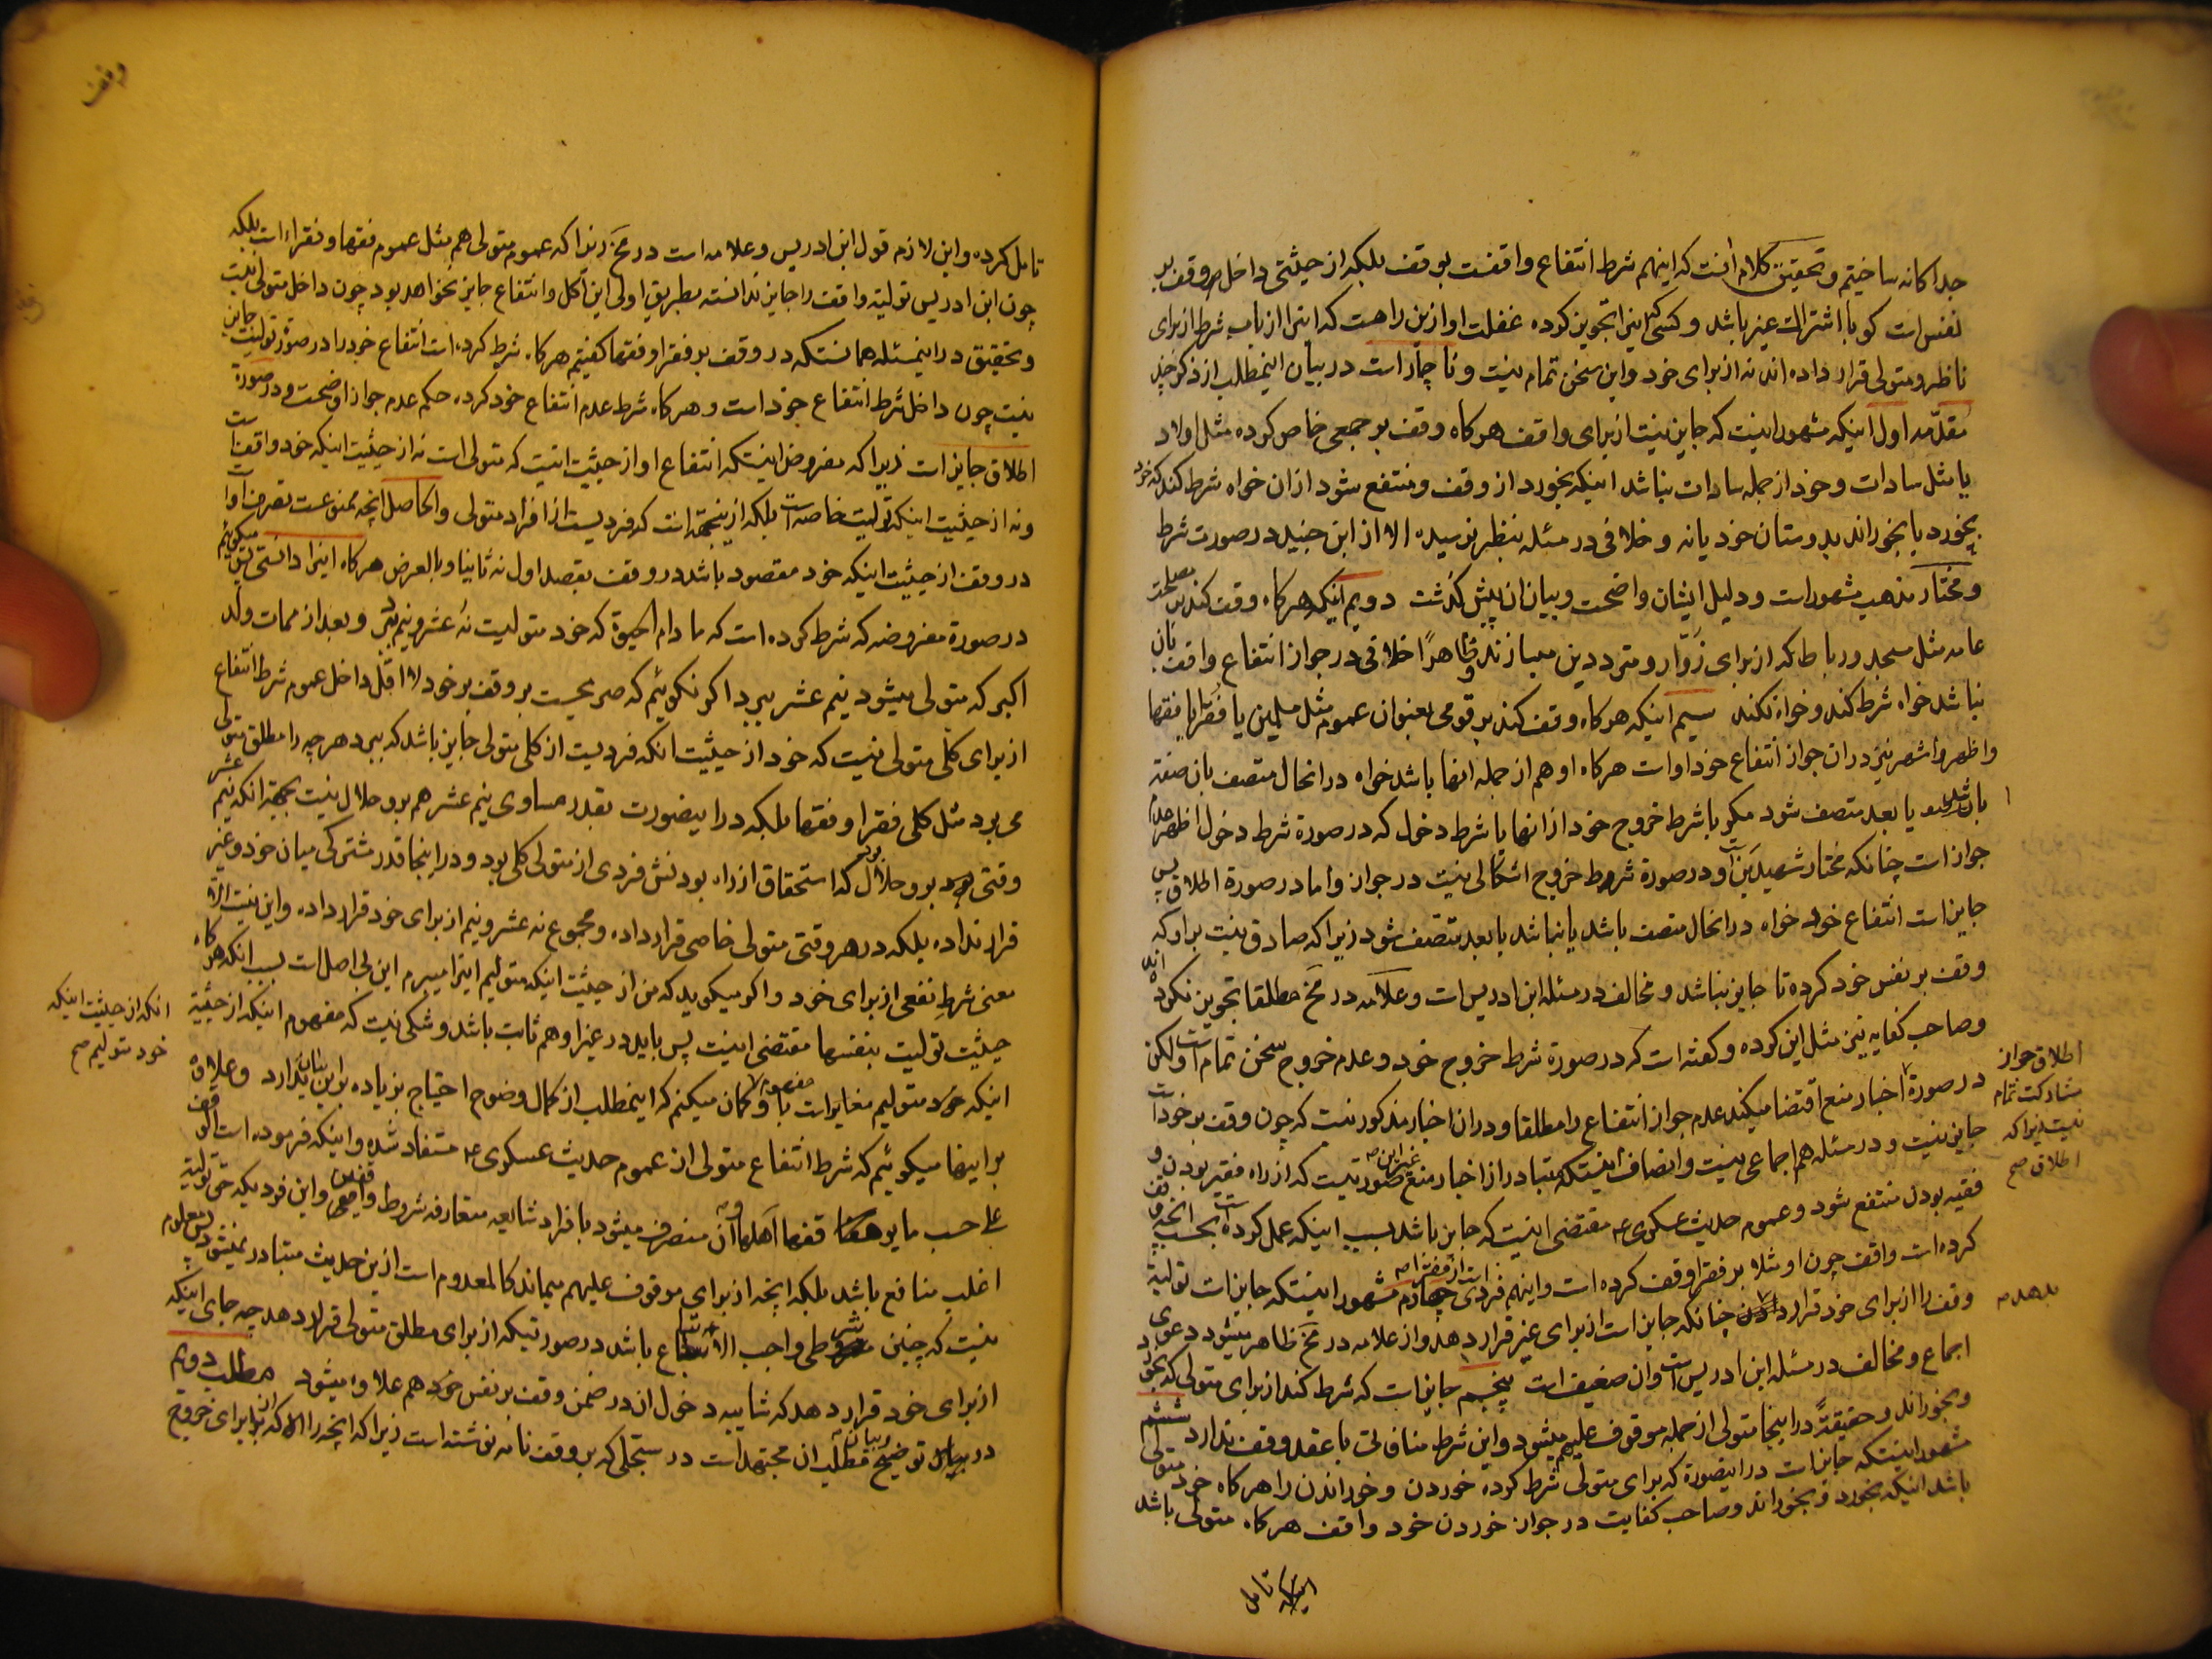 جدا کانه ساختیم و تحقیق کلام آنست که اینهم شرط انتفاع واقفست بوقف بلکه از حیثتی داخل وقف بر
نفس است کو با اشتراک غیر باشد و کسی که اینرا تجویز کرده غفلت او ازین راهست که اینرا از باب شرط از برای
ناظر و متولی قرار داده اند نه از برای خود و این سخن تمام نیست و ناچار است در بیان اینمطلب از ذکر چند
مقدّمه اول اینکه مشهور اینست که جایز نیست از برای واقف هر کاه وقف بر جمعی خاص کرده مثل اولاد
یا مثل سادات و خود از جمله سادات نباشد اینکه بخورد از وقف و منتفع شود ازان خواه شرط کند که خود
بخورد یا بخوراند بدوستان خود یا نه و خلافی در مسئله بنظر نرسیده الا از ابن جنید در صورت شرط
و مختار مذهب مشهور است و دلیل ایشان واضحست و بیان ان پیش کذشت دویم اینکه هر کاه وقف کند بر مصلحت
عامه مثل مسجد و رباط که از برای زوّار و مترددین میسازند و ظاهراً خلافی در جواز انتفاع واقف بان
نباشد خواه شرط کند و خواه نکند سیم اینکه هر کاه وقف کند بر قومی بعنوان عموم مثل مسلمین یا فقرا یا فقها
و اظهر و اشهر نیز دران جواز انتفاع خود اوست هر کاه او هم از جمله انها باشد خواه در انحال متصف بان صفة
باشد یا بعد متصف شود مکر با شرط خروج خود از انها یا شرط دخول که در صورة شرط دخول اظهر عدم
جواز است چنانکه مختار شهیدین است و در صورة شرط خروج اشکالی نیست در جواز و اما در صورة اطلاق پس
جایز است انتفاع خود خواه در انحال متصف باشد یا نباشد یا بعد متصف شود زیرا که صادق نیست بر او که
وقف بر نفس خود کرده تا جایز نباشد و مخالف در مسئله ابن ادریس است و علاّمه در مخ مطلقا تجویز نکرده اند
و صاحب کفایه نیز مثل این کرده و کفته است که در صورة شرط خروج خود و عدم خروج سخن تمام است و لکن
در صورة اخبار منع اقتضا میکند عدم جواز انتفاع را مطلقا و دران اخبار مذکور نیست که چون وقف بر خود است
جایز نیست و در مسئله هم اجماعی نیست و انصاف اینستکه متبادر از اخبار منع غیر این صورتست که از راه فقیر بودن و
فقیه بودن منتفع شود و عموم حدیث عسکری ع مقتضی اینست که جایز باشد بسبب اینکه عمل کرده است بحسب انچه وقف
کرده است واقف چون او مثلا بر فقرا وقف کرده است و اینهم فردی است از فقرا چهارم مشهور اینستکه جایز است تولیة
وقف را از برای خود قرار دهد چنانکه جایز است از برای غیر قرار دهد و از علامه در مخ ظاهر میشود دعوی
اجماع و مخالف در مسئله ابن ادریس است و ان ضعیف است پنجم جایز است که شرط کند از برای متولی که بخورد
و بخوراند و حقیقةً در اینجا متولی از جمله موقوف علیهم میشود و این شرط منافاتی با عقد وقف ندارد ششم
مشهور اینستکه جایز است در اینصورة که برای متولی شرط کرده خوردن و خوراندن را هر کاه خود متولی
باشد اینکه بخورد و بخوراند و صاحب کفایت در جواز خوردن خود واقف هر کاه متولی باشد
تامل
اطلاق جواز
مشارکت تمام
نیست زیرا که
اطلاق صح
وقف
تامل کرده و این لازم قول ابن ادریس و علامه است در مخ زیرا که عموم متولی هم مثل عموم فقها و فقراء است بلکه
چون ابن ادریس تولیة واقف را جایز ندانسته بطریق اولی این اکل و انتفاع جایز نخواهد بود چون داخل متولی نیست
و تحقیق در اینمسئله همانستکه در وقف بر فقرا و فقها کفتیم هر کاه شرط کرده است انتفاع خود را در صورة تولیت جایز
نیست چون داخل شرط انتفاع خود است و هر کاه شرط عدم انتفاع خود کرده حکم عدم جواز اوضحست و در صورة
اطلاق جایز است زیرا که مفروض اینستکه انتفاع او از حیثیت اینست که متولی است نه از حیثیت اینکه خود واقف است
و نه از حیثیت اینکه تولیت خاصه است بلکه از اینجهة است که فردیست از افراد متولی و الحاصل انچه ممنوعست تصرف او است
در وقف از حیثیت اینکه خود مقصود باشد در وقف بقصد اول نه ثانیا و بالعرض هر کاه اینرا دانستی پس میکوئیم
در صورة مفروضه که شرط کرده است که ما دام الحیوة که خود متولیست نه عشر و نیم ببرد و بعد از ممات ولد
اکبر که متولی میشود نیم عشر ببرد اکر نکوئیم که صریحست بر وقف بر خود لا اقل داخل عموم شرط انتفاع
از برای کلی متولی نیست که خود از حیثیت انکه فردیست از کلی متولی جایز باشد که ببرد هر چه را مطلق متولی
می برد مثل کلی فقرا و فقها بلکه در اینصورت بقدر مساوی نیم عشر هم بر او حلال نیست بجهة انکه نیم عشر
وقتی بر او حلال بود که استحقاق از راه بودنش فردی از متولی کلی بود و در اینجا قدر مشترکی میان خود و غیر
قرار نداده بلکه در هر وقتی متولی خاصی قرار داده و مجموع نه عشر و نیم از برای خود قرار داده و این نیست الا
معنی شرط نفعی از برای خود و اکر میکوید که من از حیثیت اینکه متولیم اینرا میبرم این بی اصل است بسبب انکه هر کاه
حیثیت تولیت بنفسها مقتضی اینست پس باید در غیر او هم ثابت باشد و شکی نیست که مفهوم اینکه از حیثیة
اینکه خود متولیم مغایر است با مفهوم و کمان میکنم که اینمطلب از کمال وضوح احتیاج بزیاده بر این بیان ندارد و علاوه
بر اینها میکوئیم که شرط انتفاع متولی از عموم حدیث عسکری ع مستفاد شده و اینکه فرموده است الوقوف
علی حسب ما یوقفها اهلها ان منصرف میشود بافراد شایعه متعارفه شروط واقفین و این فرد یکه حق تولیة
اغلب منافع باشد بلکه انچه از برای موقوف علیهم بماند کالمعدوم است ازین حدیث متبادر نمیشود پس معلوم
نیست که چنین شرطی واجب الاتباع باشد در صورتیکه از برای مطلق متولی قرار دهد چه جای اینکه
از برای خود قرار دهد که شایبه دخول ان در ضمن وقف بر نفس خود هم علاوه میشود مطلب دویم
در بیان توضیح مطلب ان مجتهد است در سجلی که بر وقف نامه نوشته است زیرا که انچه را از برای خروج
انکه از حیثیت اینکه
خود متولیم صح